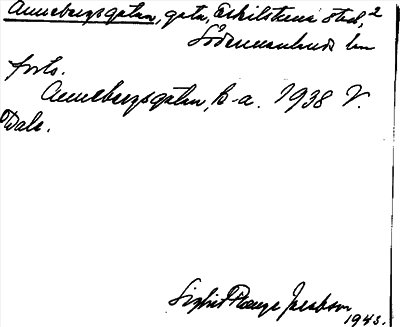 Annebergsgatan, gata, Eskilstuna stad, 2
Södermanlands län
forts.
Annebergsgatan, k-a. 1938 V.
Dale.
Sigfrid Jacobson
1943.